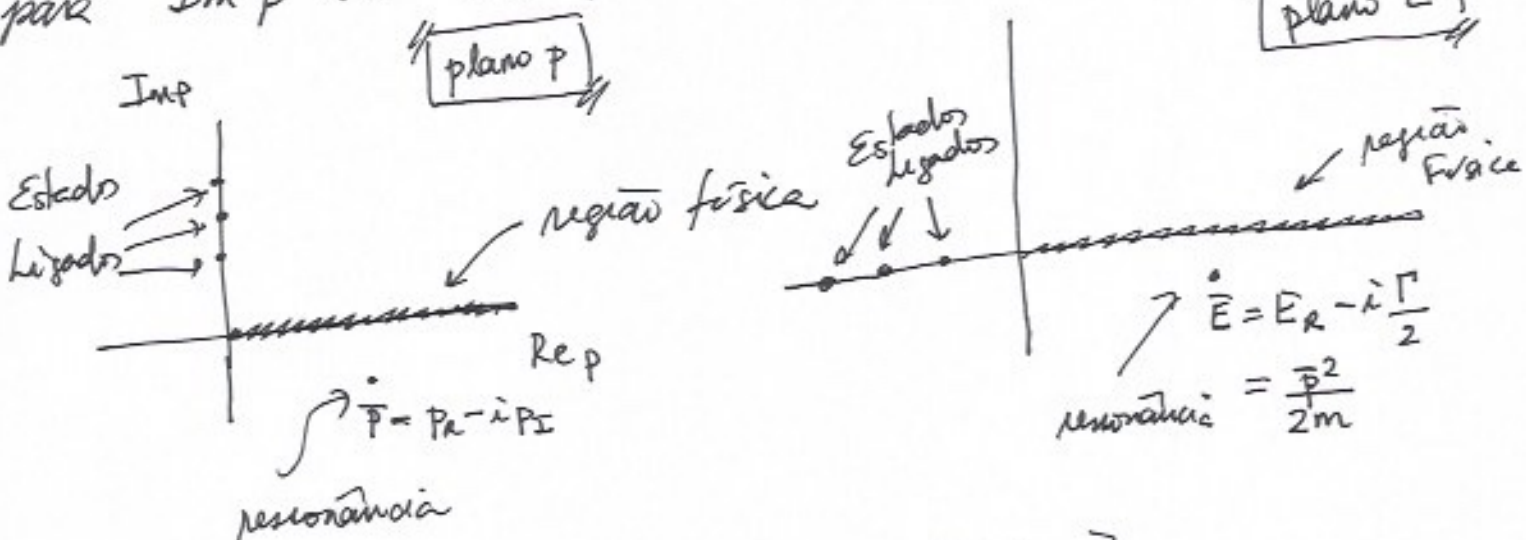 para Im p
plano p
plano E
Im p
Estados
Ligados
região física
Re p
p̄ = p_R - i p_I
ressonância
Estados
Ligados
região
Física
Ē = E_R - i Γ/2
= p̄²/2m
ressonância